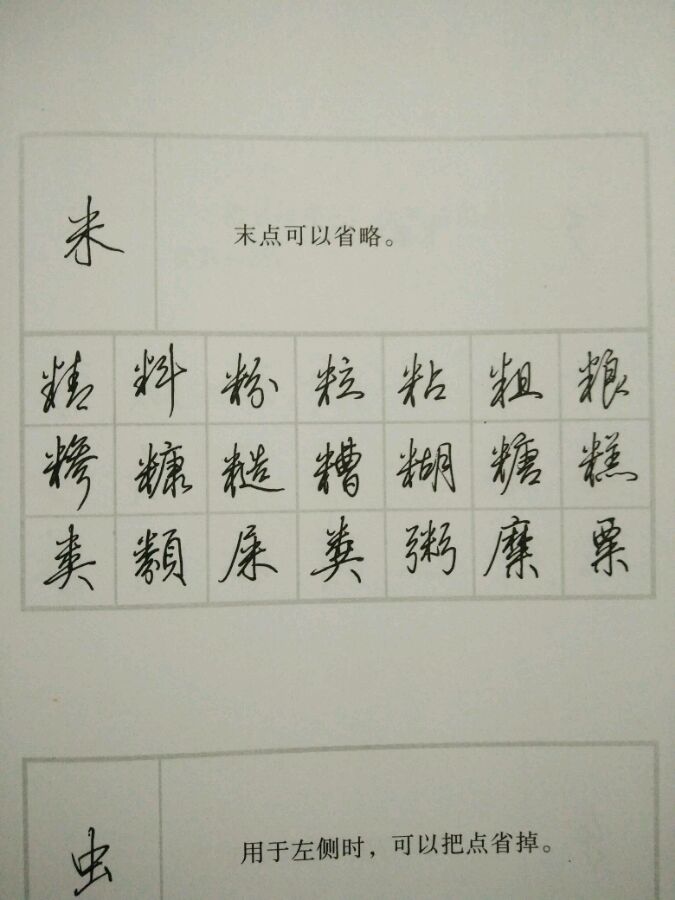 米
末点可以省略。
精 料 粉 粒 粘 粗 粮
糁 糠 糙 糟 糊 糖 糕
类 類 屎 粪 粥 糜 粟
虫
用于左侧时，可以把点省掉。